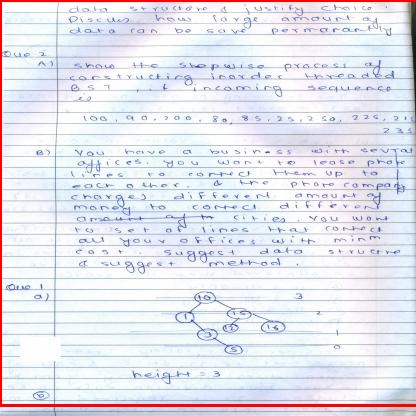 data structure & justify choice.
Discuss how large amount of
data can be save permanantly
Que 2
A) show the stepwise process of
constructing inorder threaded
BST, if incoming sequence
is
100, 90, 200, 80, 85, 25, 250, 225, 21
235
B) You have a business with several
offices. You want to lease phone
lines to connect them up to
each other. & the phone company
charges different amount of
money to connect different
cities. You want
to set of lines that connect
all your offices with minm
cost suggest data structure
& suggest method.
Que 1
a)
10 3
1 15 2
3 12 16 1
5 0
height = 3
b